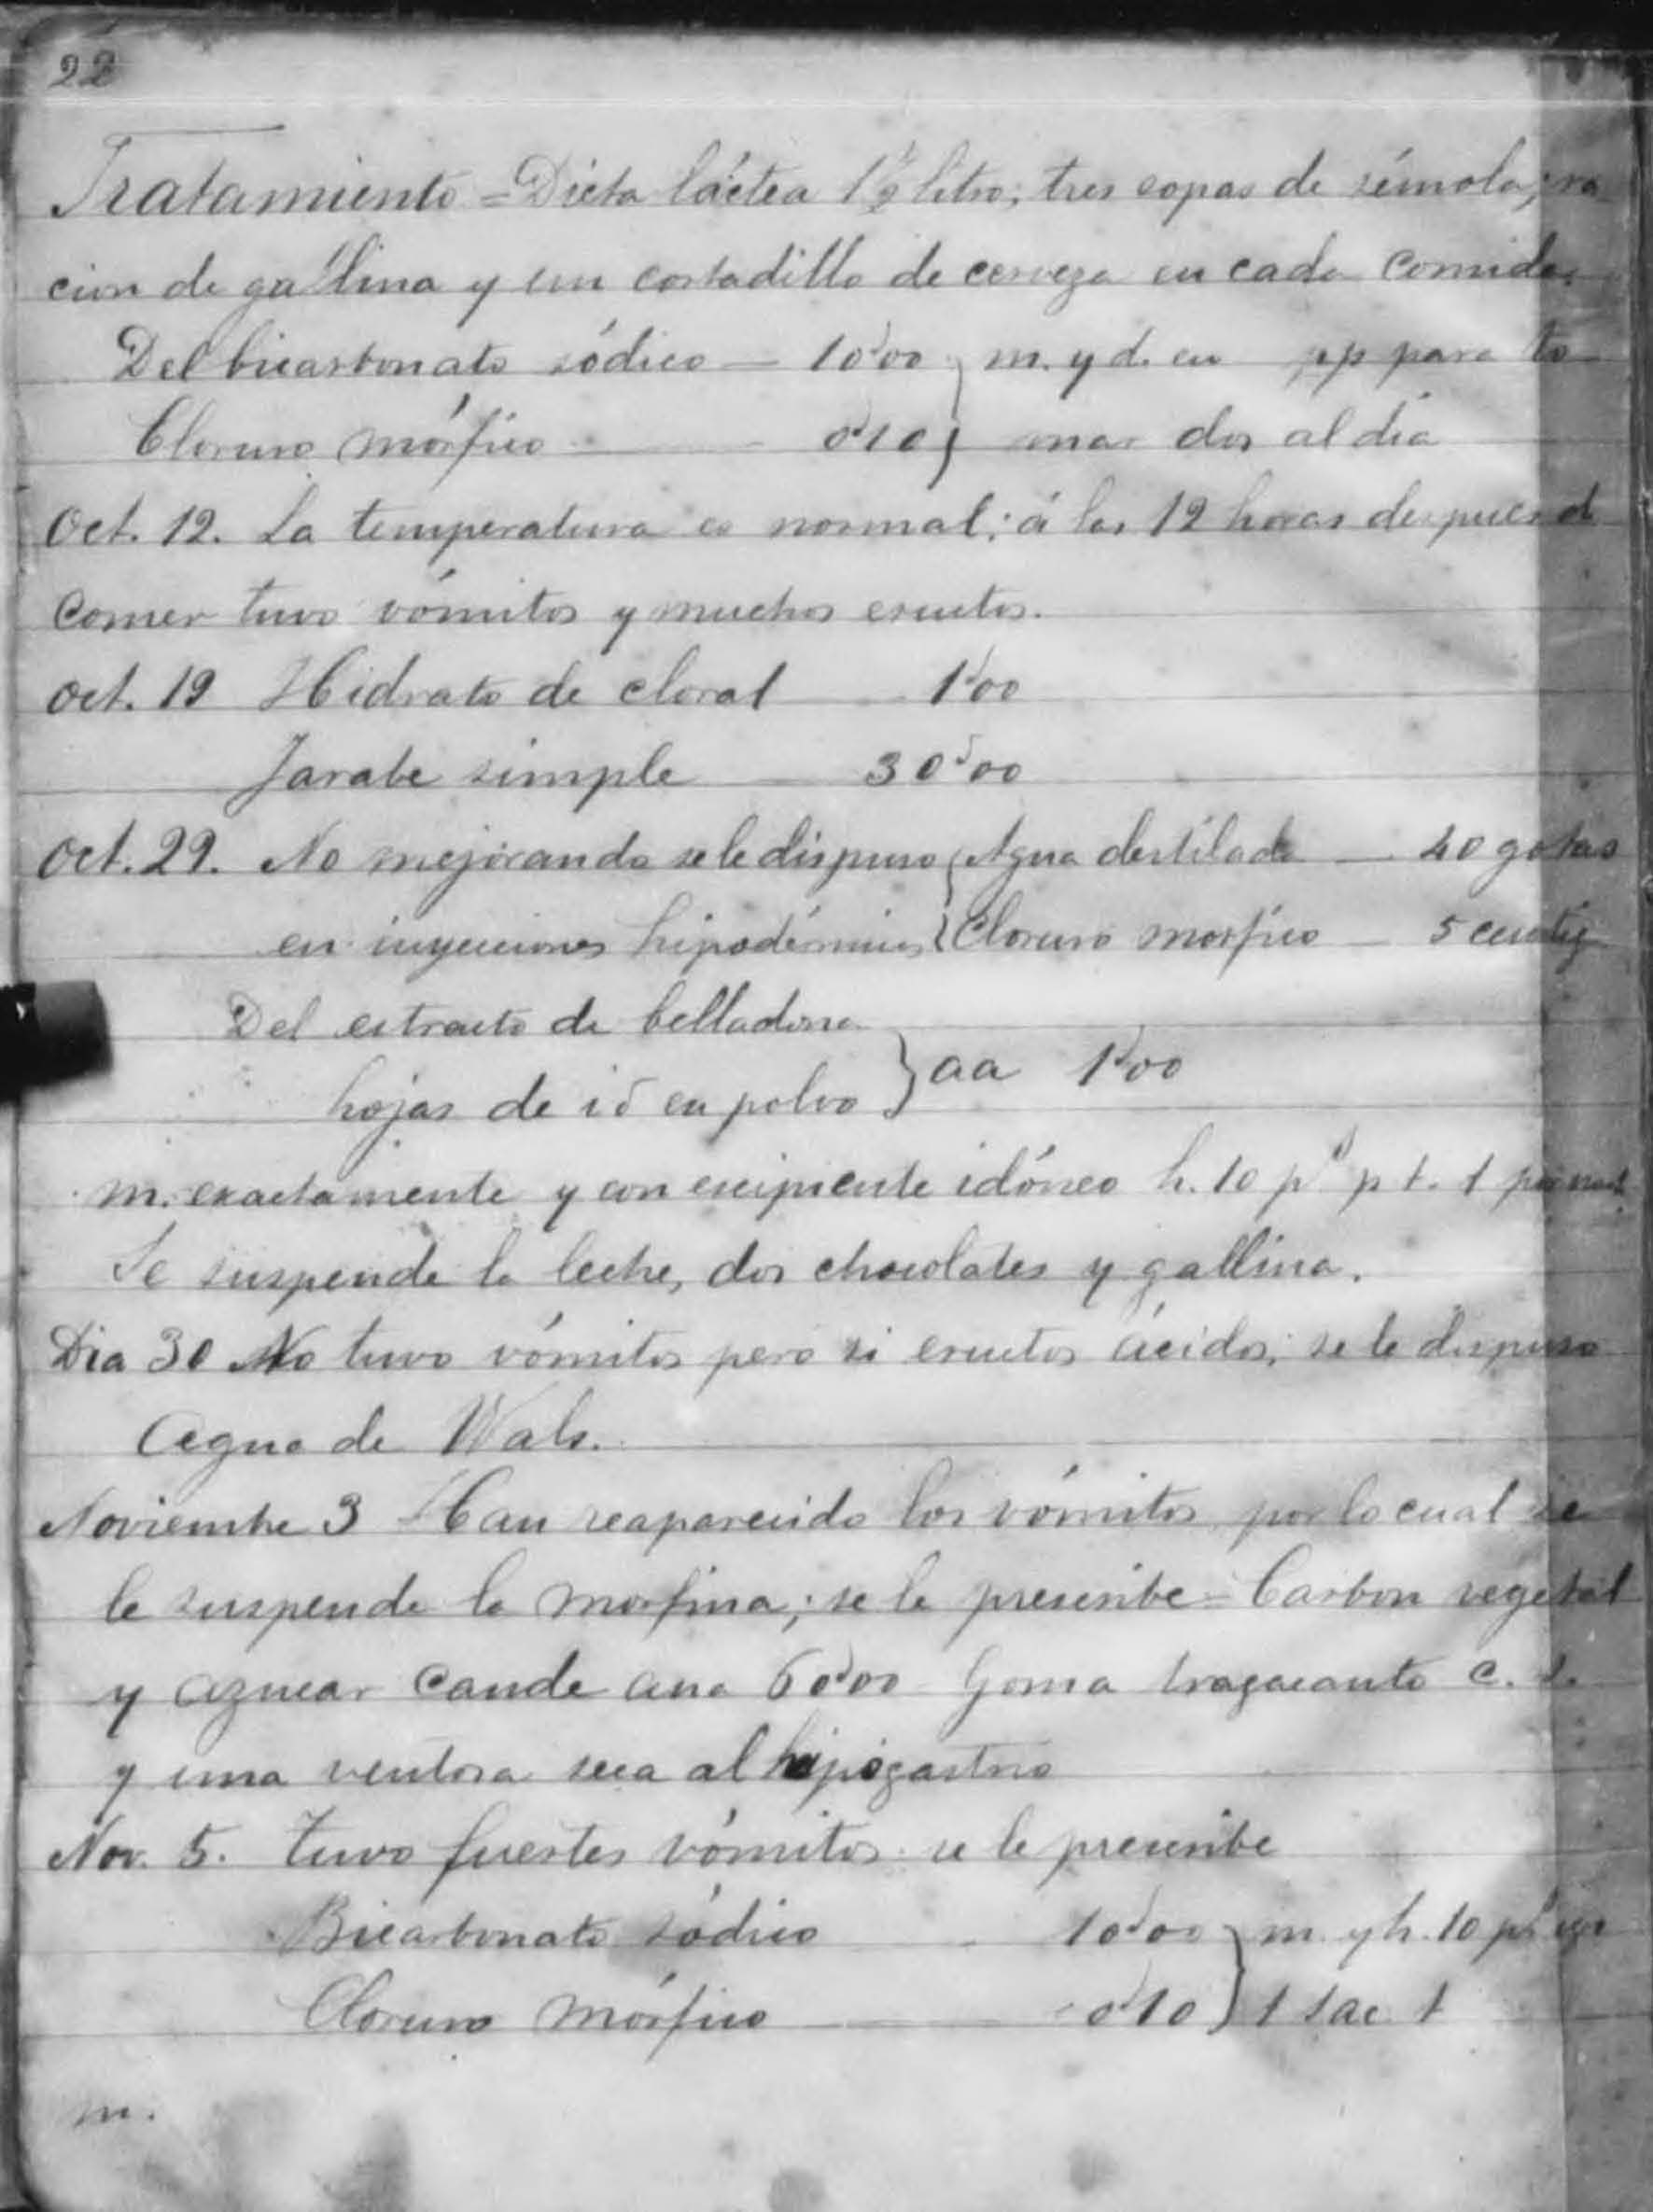 22
Tratamiento = Dieta láctea 1½ litro; tres copas de sémola; ra
cion de gallina y un cortadillo de cerveza en cada comida.
Del bicarbonato sódico — 10'00 } m. y d. en pp para to
Cloruro mórfico — 0'10 } mar dos al dia
Oct. 12. La temperatura es normal; á las 12 horas despues d
comer tuvo vómitos y muchos eructos.
Oct. 19 Hidrato de cloral — 1'00
Jarabe simple — 30'00
Oct. 29. No mejorando se le dispuso { Agua destilada — 40 gotas
en inyecciones hipodérmicas { Cloruro morfico — 5 centig
Del estracto de belladona
hojas de id en polvo } aa 1'00
m. exactamente y con escipiente idóneo h. 10 p.s p t. 1
Se suspende la leche, dos chocolates y gallina.
Dia 30 No tuvo vómitos pero si eructos ácidos; se le dispuso
Agua de Wals.
Noviembre 3 Han reaparecido los vómitos por lo cual se
le suspende la morfina; se le prescribe = Carbon vegetal
y azucar cande ana 60'00 Goma tragacanto c. s.
y una ventosa seca al hipogastrio
Nov. 5. Tuvo fuertes vómitos se le prescribe
Bicarbonato sódico — 10'00 } m. y h. 10 p.s
Cloruro mórfico — 0'10 } t 1 ac t
m.